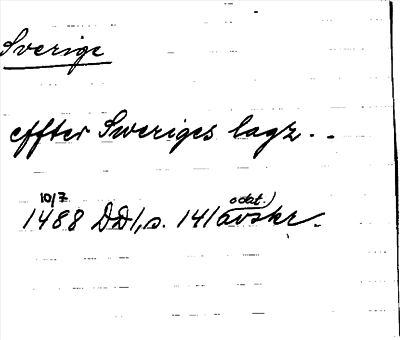 Sverige
effter Sweriges lagz..
10/7 odat.)
1488 DD1, s. 141 avskr.